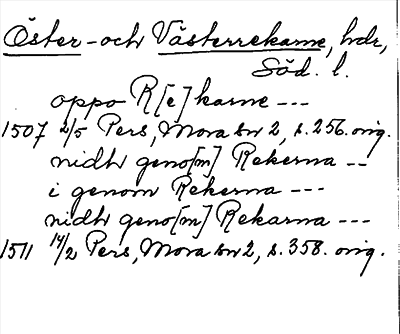 Öster- och Västerrekarne, hdr,
Söd. l.
oppo R[e]karne ---
1507 2/5 Pers, Mora br 2, s. 256. orig.
nidh geno[m] Rekerna --
i genom Rekerna ---
nidh geno[m] Rekarna ---
1511 14/2 Pers, Mora br 2, s. 358. orig.